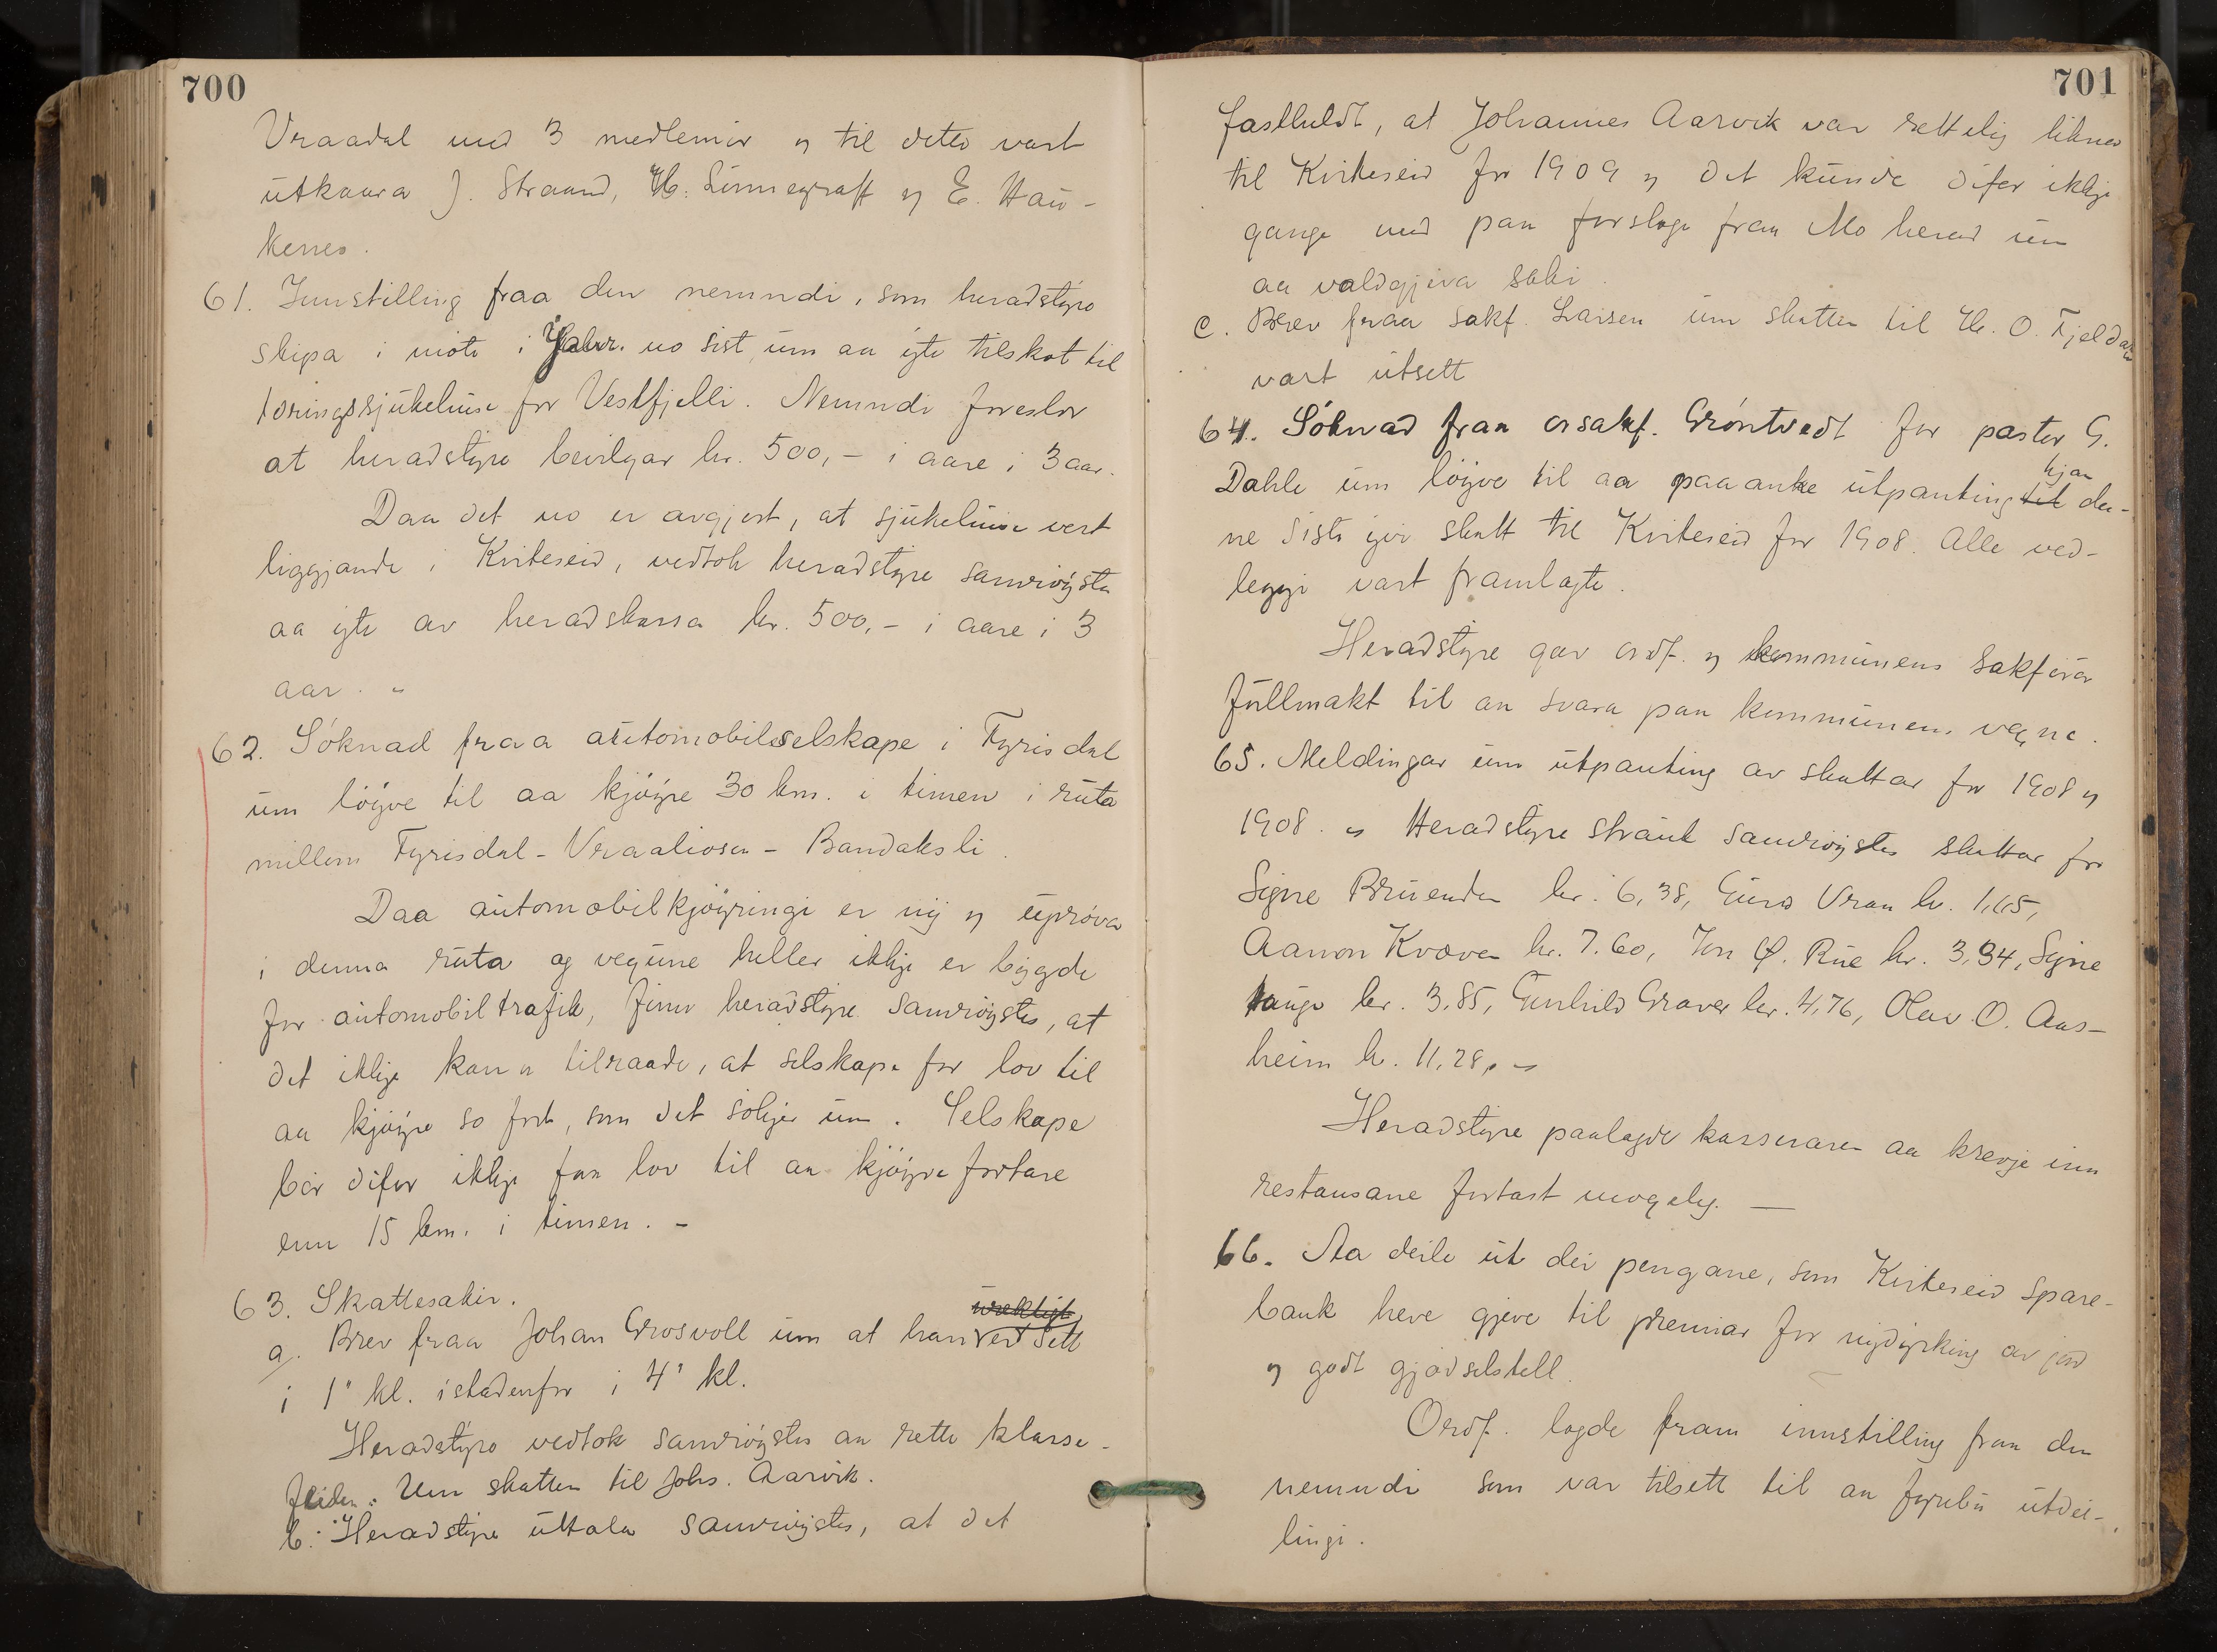 700
Vraadal med 3 medlemir og til detta vart
utkaara J. Straand, H. Sinnegraff og E. Hau-
kenes.
61. Innstilling fraa den nemndi, som heradstyre
skipa i møte i Febr. no sist um aa yte tilskot til
tøringssjukehuse for Vestfjelli. Nemndi foreslor
at heradstyre beviljar kr. 500,- i aare i 3 aar.
Daa det no er avgjort, at sjukehuse vert
liggjande i Kviteseid, vedtok heradstyre samrøystes
aa yte av heradskassa kr. 500,- i aare i 3
aar. -
62. Søknad fraa automobilselskape i Fyrisdal
um løyve til aa kjøyre 30 km. i timen i ruta
millom Fyrisdal - Vraaliosen - Bandaksli.
Daa automobilkjøyringi er ny og uprøva
i denna ruta og vegune heller ikkje er bygde
for automobiltrafik, finn heradstyre samrøystes, at
det ikkje kann tilraade, at selskape fær lov til
aa kjøyre so fort, som det søkjer um. Selskape
bør difor ikkje faa lov til aa kjøyre fortare
enn 15 km. i timen. -
63. Skattesakir.
urektigt
a. Brev fraa Johan Grosvoll um at han vert sett
i 1' kl. istadenfor i 4' kl.
Heradstyre vedtok samrøystes aa rette klasse-
feilen. Um skatten til Johs. Aarvik.
b. Heradstyre uttala samrøystes, at det
701
fastheldt, at Johannes Aarvik var rettelig likna
til Kviteseid for 1909 og det kunde difor ikkje
gange med paa forslage fraa Mo herad um
aa valdgjeva saki.
c. Brev fraa sakf. Larsen um skatten til H. O. Fjeldal
vart utsett
64. Søknad fraa orsakf. Grøntvedt for pastor G.
hjaa
Dahle um løyve til aa paaanke utpanting til den-
ne siste for skatt til Kviteseid for 1908. Alle ved-
leggi vart framlagte.
Heradstyre gav ordf. og kommunens sakførar
fullmakt til aa svara paa kommunens vegne.
65. Meldingar um utpanting av skattar for 1908 og
1908. - Heradstyre strauk samrøystes skattar for
Signe Bruenden kr. 6,38, Guro Vraa kr. 1,65,
Aanon Kvæven kr. 7.60, Jon Ø. Rue kr. 3,34, Signe
Hauge kr. 3,85, Gunhild Graver kr. 4,76, Olav O. Aas-
heim kr. 11,28. -
Heradstyre paalagde kasseraren aa krevje inn
restansane fortast mogeleg. -
66. Aa deile ut dei pengane, som Kviteseid Spare-
bank heve gjeve til premiar for nydyrking av jord
og godt gjødselstell.
Ordf. lagde fram innstilling fraa den
nemndi som var tilsett til aa fyrebu utdei-
lingi.